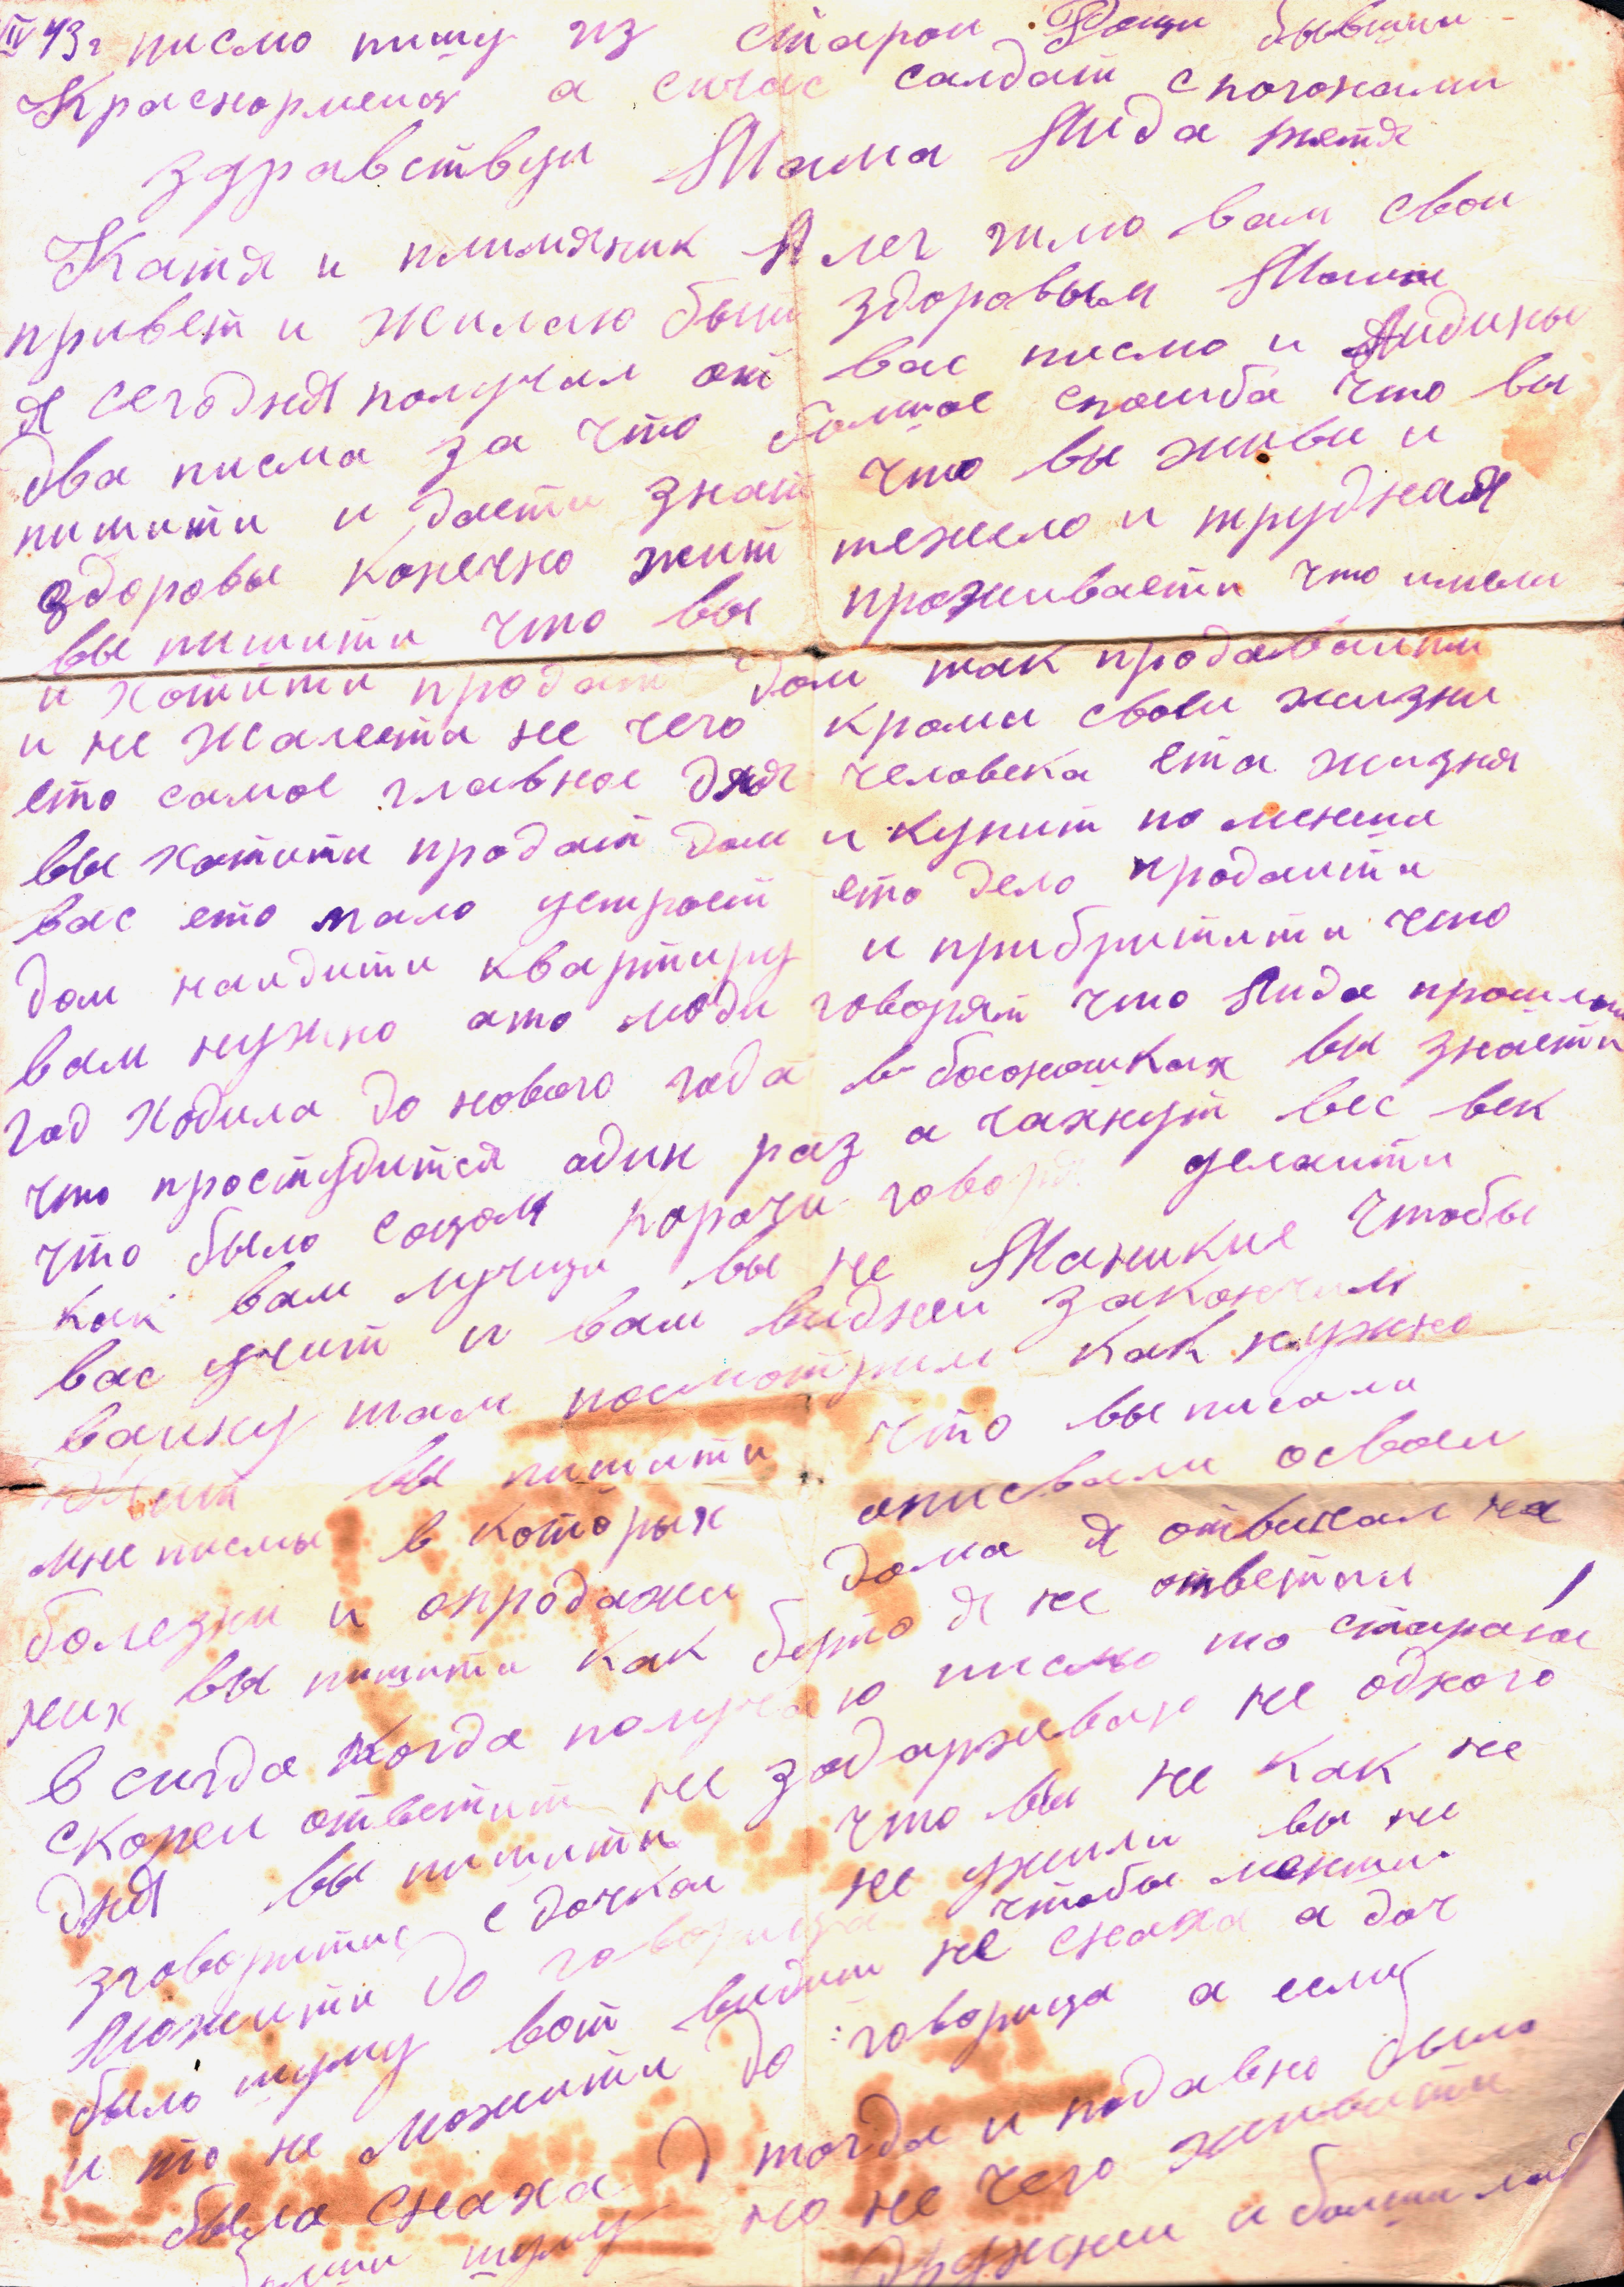 IV 43г писмо пишу из старои Рощи бывшии
Красноармеиц а сичас салдат с погонами
здравствуи Мама Лида тетя
Катя и плимяник Алег шлю вам свои
привет и жилаю быт здоровым Мама
я сегодня получил от вас писмо и Лидины
два писма за что болшое спосиба что вы
пишити и даети знат что вы живы и
здоровы конечно жит тежело и трудная
вы пишити что вы проживаети что имели
и хотити продат дом так продаваити
и не жалеети не чего кроми своеи жизни
ето самое главное для человека ета жизня
вы хотити продат дом и купит по менши
вас ето мало устроет ето дело продаити
дом наидити квартиру и прибритити что
вам нужно ато люди говорят что Лида прошлыи
год ходила до нового года в босоношках вы знаети
что простудится адин раз а чахнут вес век
что было сощом корочи говоря делаити
как вам лучщи вы не Маникие чтобы
вас учит и вам виднеи закончим
ваину там посмотрим как нужно
жит вы пишити что вы писали
мне писмы в которых описвали освоеи
болезни и опродажи дома я отвичал на
них вы пишити как бутто я не ответил
в сигда когда получаю писмо то стараюс
скореи ответит не задарживаю не одного
дня вы пишити что вы не как не
зговоритис с дочкои не ужили вы не
можити до говорица чтобы менши
было шуму вот видити не снаха а доч
и то не можити до говорица а если
была снаха тогда и подавно было
шуму но не чего живити
дружнеи и болши